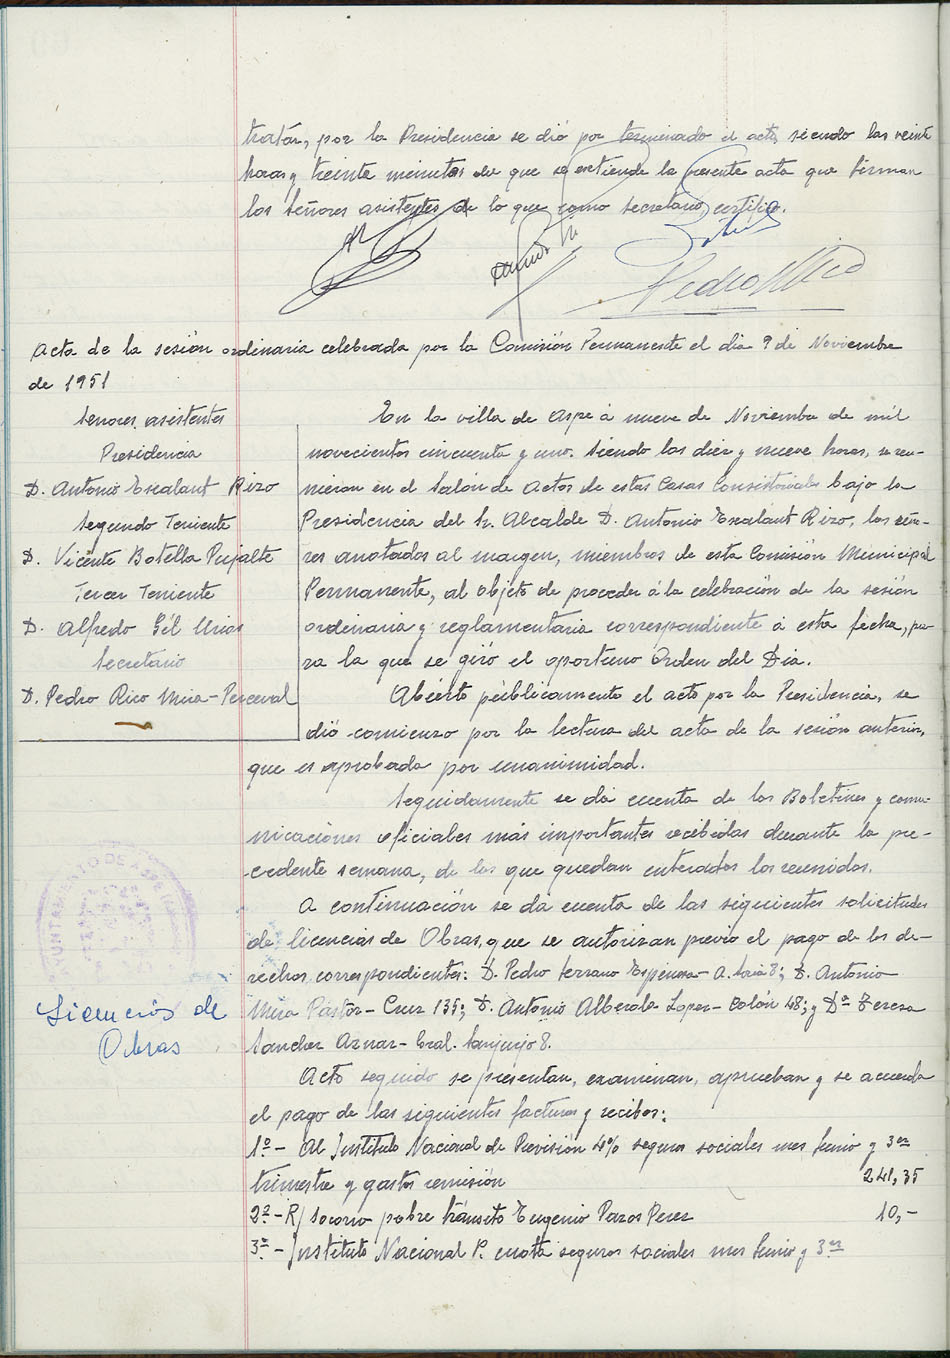 tratar, por la Presidencia se dió por terminado el acto, siendo las veinte
horas y treinta minutos de que se extiende la presente acta que firman
los Señores asistentes de lo que como secretario, certifico.
Pedro Rico
Acta de la sesión ordinaria celebrada por la Comisión Permanente el dia 9 de Noviembre
de 1951
Señores asistentes
Presidencia
D. Antonio Escalant Rizo
Segundo Teniente
D. Vicente Botella Pujalte
Tercer Teniente
D. Alfredo Gil Urios
Secretario
D. Pedro Rico Mira-Perceval
En la villa de Aspe á nueve de Noviembre de mil
novecientos cincuenta y uno. Siendo las diez y nueve horas, se reu-
nieron en el Salón de Actos de estas Casas Consistoriales bajo la
Presidencia del Sr. Alcalde D. Antonio Escalant Rizo, los seño-
res anotados al margen, miembros de esta Comisión Municipal
Permanente, al objeto de proceder á la celebración de la sesión
ordinaria y reglamentaria correspondiente á esta fecha, pa-
ra la que se giró el oportuno Orden del Dia.
Abierto públicamente el acto por la Presidencia, se
dió comienzo por la lectura del acta de la sesión anterior,
que es aprobada por unanimidad.
Seguidamente se da cuenta de los Boletines y comu-
nicaciones oficiales más importantes recibidas durante la pre-
cedente semana, de los que quedan enterados los reunidos.
A continuación se da cuenta de las siguientes solicitudes
de licencias de Obras, que se autorizan previo el pago de los de-
rechos correspondientes: D. Pedro Serrano Espinosa - A. Soria 8; D. Antonio
Mira Pastor - Cruz 135; D. Antonio Alberola Lopez - Colón 48; y Dª Teresa
Sanchez Aznar - Gral. Sanjurjo 8.
AYUNTAMIENTO DE ASPE
Licencias de
Obras
Acto seguido se presentan, examinan, aprueban y se acuerda
el pago de las siguientes facturas y recibos:
1º - Al Instituto Nacional de Previsión 4% seguros sociales mes Junio y 3er
trimestre y gastos remisión 241,35
2º - R/ Socorro pobre tránsito Eugenio Pazos Perez 10,-
3º - Instituto Nacional P. cuota seguros sociales mes Junio y 3er